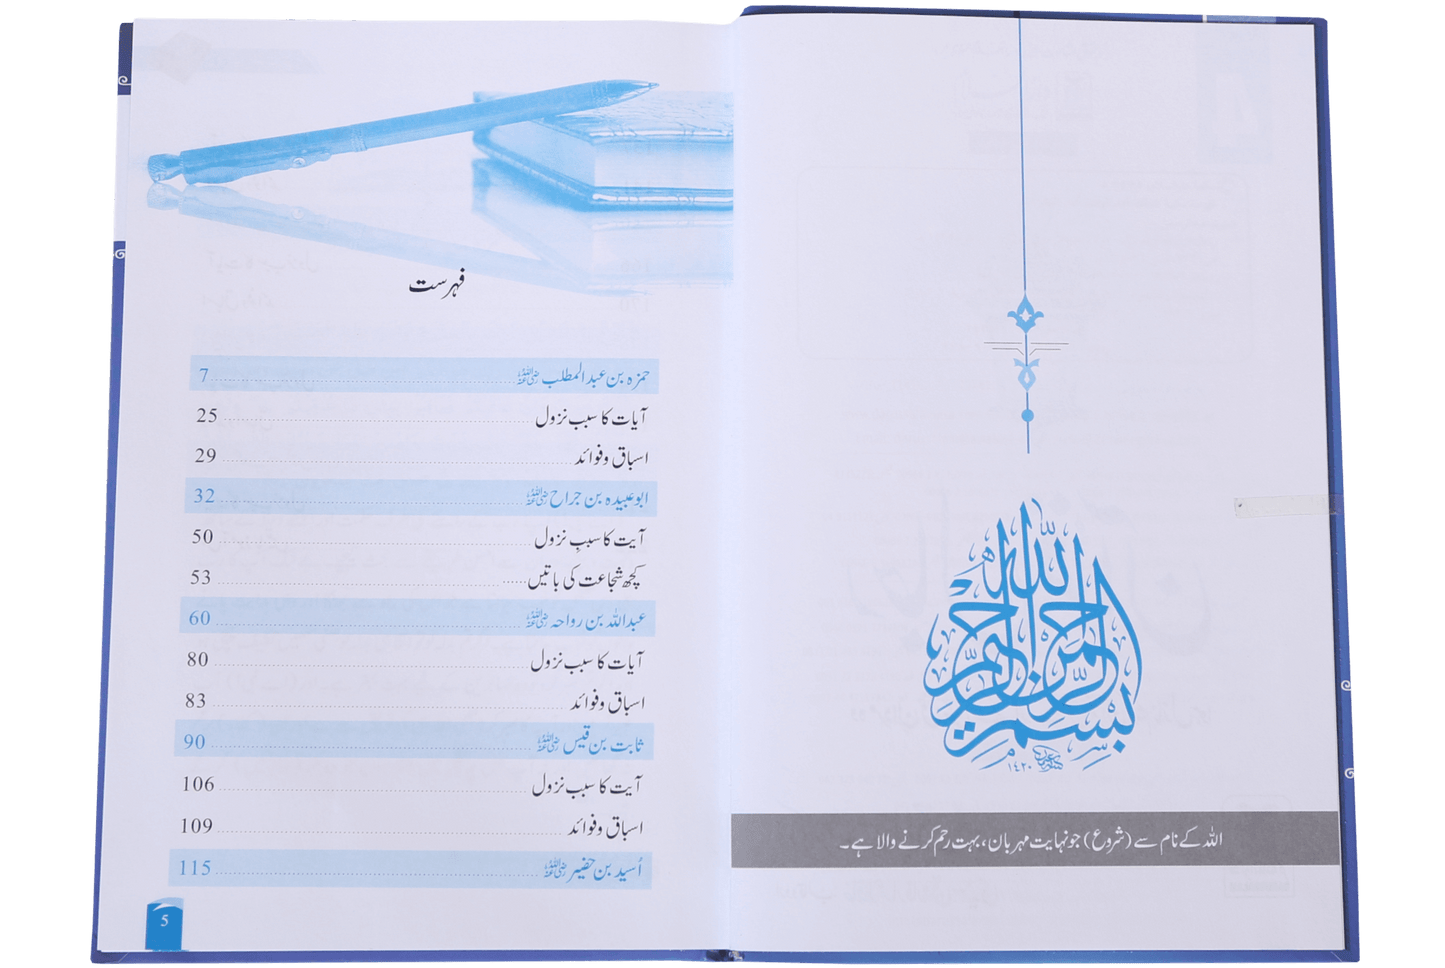 بسم الله الرحمن الرحيم
١٤٢٠
اللہ کے نام سے (شروع) جو نہایت مہربان، بہت رحم کرنے والا ہے۔
فہرست
حمزہ بن عبدالمطلب رضی اللہ عنہ ........ 7
آیات کا سبب نزول ........ 25
اسباق و فوائد ........ 29
ابوعبیدہ بن جراح رضی اللہ عنہ ........ 32
آیت کا سببِ نزول ........ 50
کچھ شجاعت کی باتیں ........ 53
عبداللہ بن رواحہ رضی اللہ عنہ ........ 60
آیات کا سبب نزول ........ 80
اسباق و فوائد ........ 83
ثابت بن قیس رضی اللہ عنہ ........ 90
آیت کا سبب نزول ........ 106
اسباق و فوائد ........ 109
اُسید بن حضیر رضی اللہ عنہ ........ 115
5